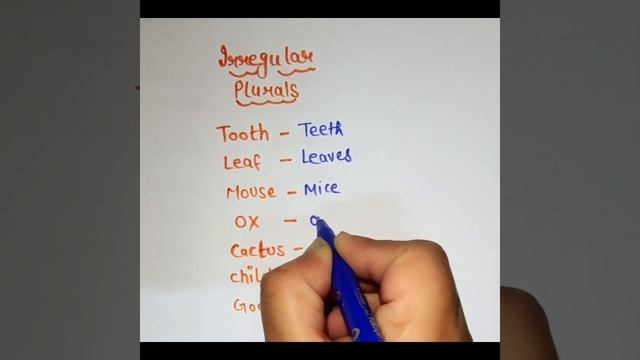 Irregular
Plurals
Tooth - Teeth
Leaf - Leaves
Mouse - Mice
OX -
Cactus -